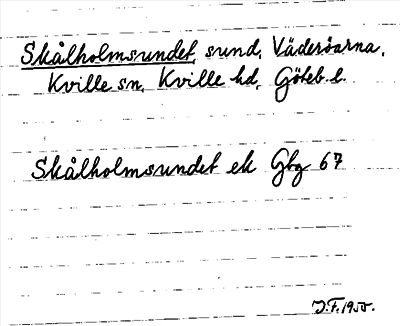 Skålholmsundet, sund, Väderöarna,
Kville sn, Kville hd, Göteb. l.
Skålholmsundet ek Gbg 67
J.F. 1950.